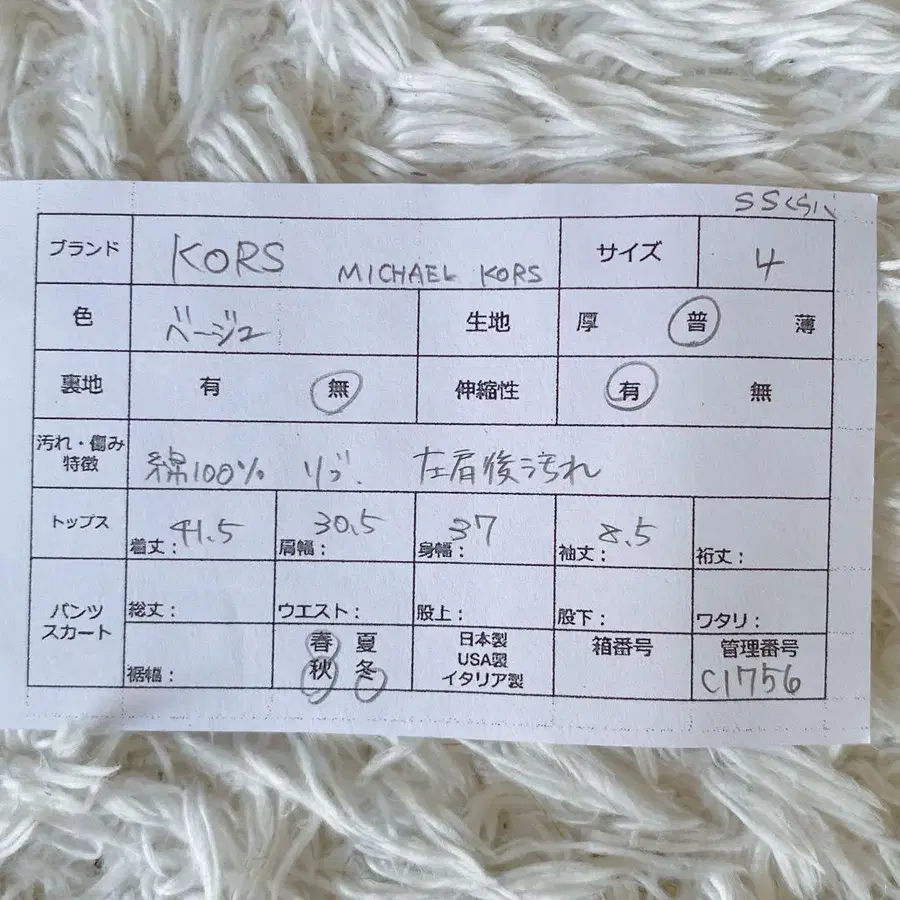 SS(S)
ブランド KORS MICHAEL KORS サイズ 4
色 ベージュ 生地 厚 普 薄
裏地 有 無 伸縮性 有 無
汚れ・傷み
特徴 綿100% リブ. 左肩後汚れ
トップス 着丈：41.5 肩幅：30.5 身幅：37 袖丈：8.5 裄丈：
パンツ
スカート 総丈： ウエスト： 股上： 股下： ワタリ：
裾幅： 春 夏
秋 冬
日本製
USA製
イタリア製
箱番号
管理番号
C1756